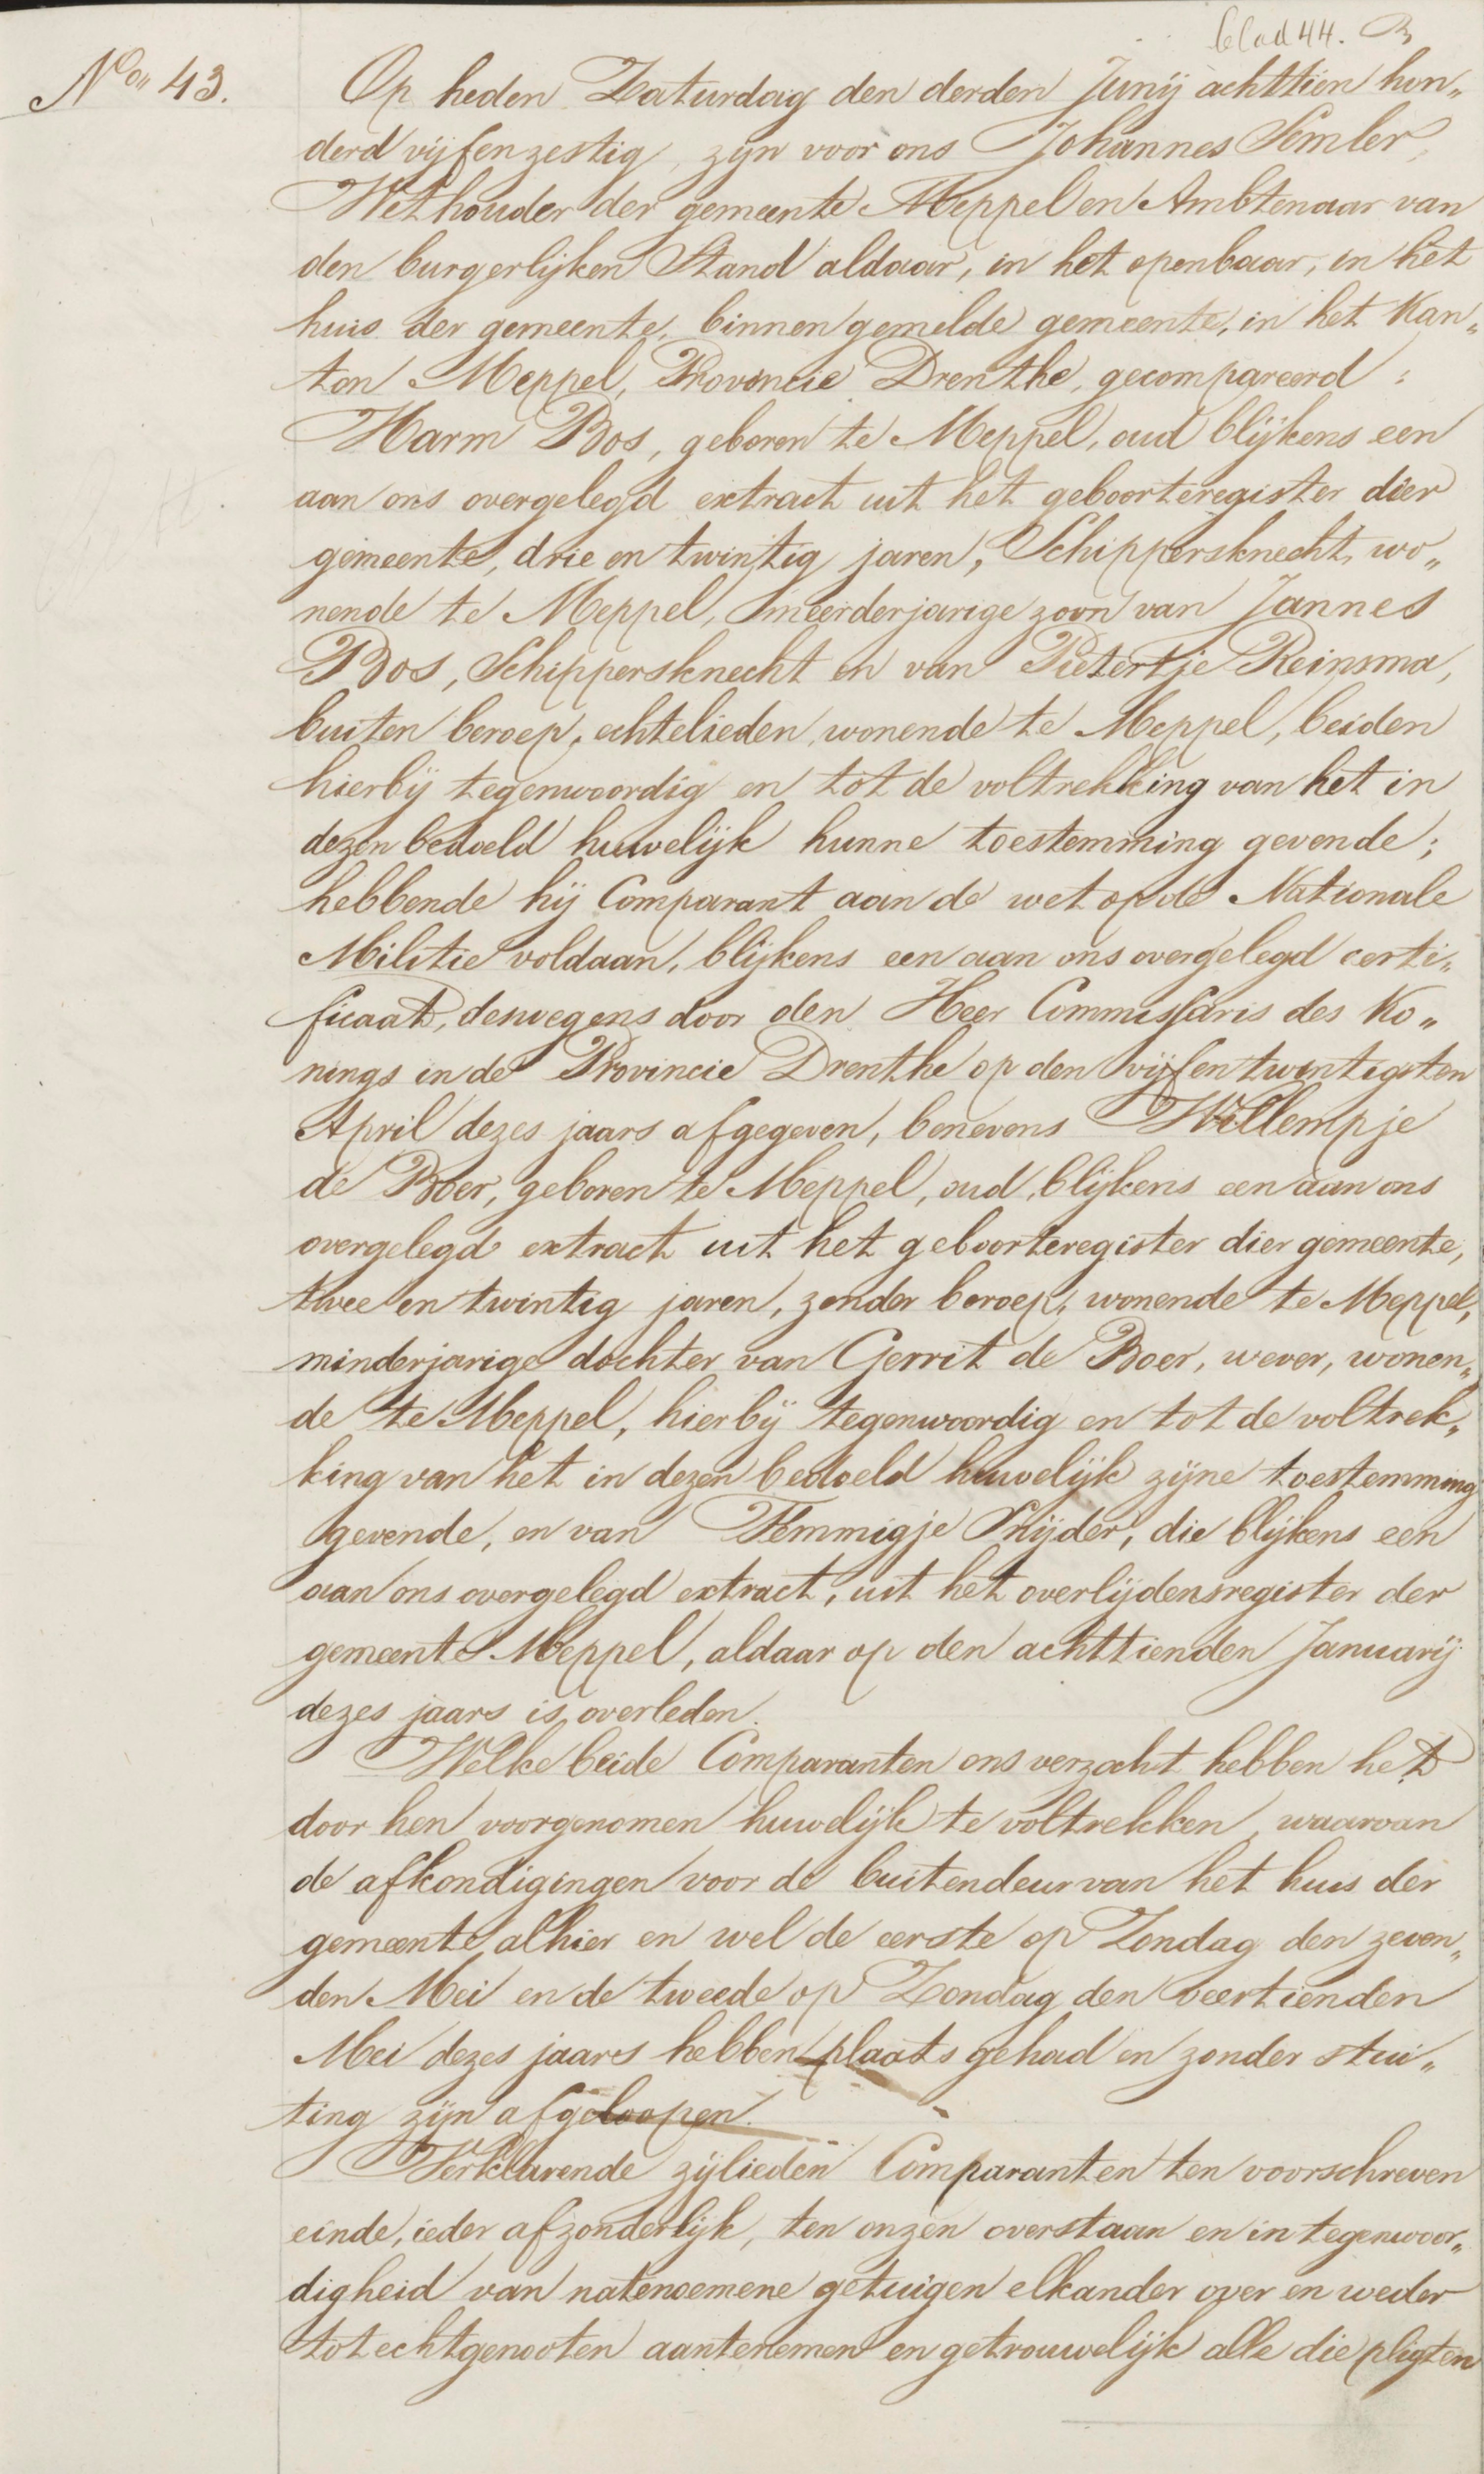 blad 44.
No„ 43.
Op heden Zaturdag den derden Junij achttien hon„
derd vijf en zestig, zijn voor ons Johannes Semler,
Wethouder der gemeente Meppel en Ambtenaar van
den burgerlijken Stand aldaar, in het openbaar, in het
huis der gemeente, binnen gemelde gemeente, in het Kan„
ton Meppel, Provincie Drenthe, gecompareerd:
Harm Bos, geboren te Meppel, oud blijkens een
aan ons overgelegd extract uit het geboorteregister dier
gemeente, drie en twintig jaren, Schippersknecht, wo„
nende te Meppel, meerderjarige zoon van Jannes
Bos, Schippersknecht en van Pietertje Reinsma,
buiten beroep, echtelieden, wonende te Meppel, beiden
hierbij tegenwoordig en tot de voltrekking van het in
dezen bedoeld huwelijk hunne toestemming gevende;
hebbende hij Comparant aan de wet op de Nationale
Militie voldaan, blijkens een aan ons overgelegd certi„
ficaat, deswegens door den Heer Commissaris des Ko„
nings in de Provincie Drenthe op den vijf en twintigsten
April dezes jaars afgegeven, benevens Willempje
de Boer, geboren te Meppel, oud, blijkens een aan ons
overgelegd extract uit het geboorteregister dier gemeente,
twee en twintig jaren, zonder beroep, wonende te Meppel,
minderjarige dochter van Gerrit de Boer, wever, wonen„
de te Meppel, hierbij tegenwoordig en tot de voltrek„
king van het in dezen bedoeld huwelijk zijne toestemming
gevende, en van Femmigje Snijder, die blijkens een
aan ons overgelegd extract, uit het overlijdensregister der
gemeente Meppel, aldaar op den achttienden Januarij
dezes jaars is overleden.
Welke beide Comparanten ons verzocht hebben het
door hen voorgenomen huwelijk te voltrekken, waarvan
de afkondigingen voor de buitendeur van het huis der
gemeente alhier en wel de eerste op Zondag den zeven„
den Mei en de tweede op Zondag den veertienden
Mei dezes jaars hebben plaats gehad en zonder stui„
ting zijn afgeloopen.
Verklarende zijlieden Comparanten ten voorschreven
einde, ieder afzonderlijk, ten onzen overstaan en in tegenwoor„
digheid van natenoemene getuigen elkander over en weder
tot echtgenooten aantenemen en getrouwelijk alle die pligten